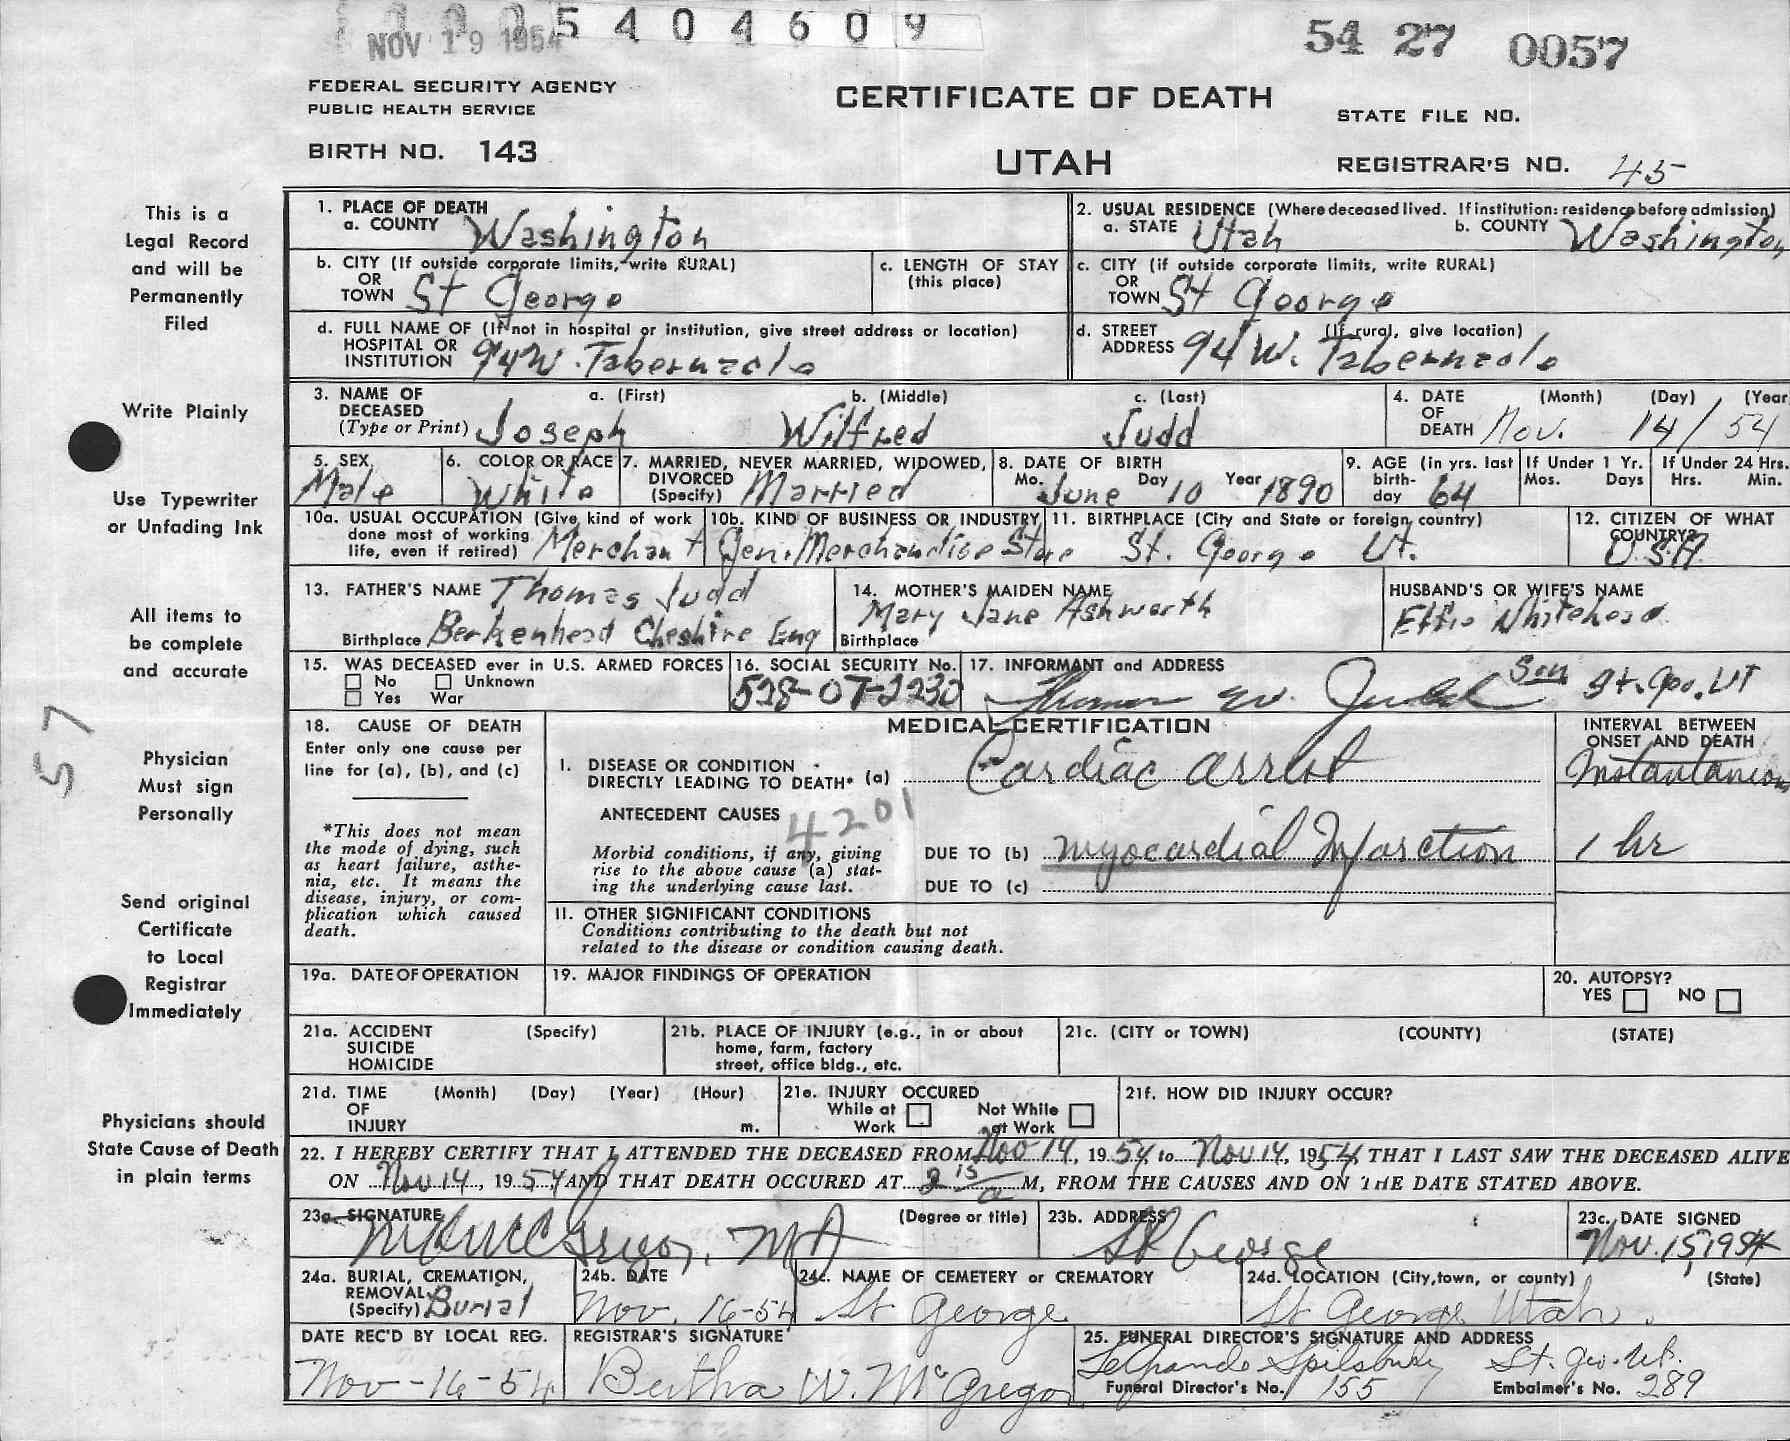 NOV 19 1954 5 4 0 4 6 0 9
54 27 0057
FEDERAL SECURITY AGENCY
PUBLIC HEALTH SERVICE
CERTIFICATE OF DEATH
STATE FILE NO.
BIRTH NO. 143
UTAH
REGISTRAR'S NO. 45
This is a
Legal Record
and will be
Permanently
Filed
Write Plainly
Use Typewriter
or Unfading Ink
All items to
be complete
and accurate
57
Physician
Must sign
Personally
Send original
Certificate
to Local
Registrar
Immediately
Physicians should
State Cause of Death
in plain terms
1. PLACE OF DEATH
a. COUNTY Washington
2. USUAL RESIDENCE (Where deceased lived. If institution: residence before admission)
a. STATE Utah b. COUNTY Washington
b. CITY (If outside corporate limits, write RURAL)
OR
TOWN St George
c. LENGTH OF STAY
(this place)
c. CITY (if outside corporate limits, write RURAL)
OR
TOWN St George
d. FULL NAME OF (If not in hospital or institution, give street address or location)
HOSPITAL OR
INSTITUTION 94 W. Tabernacle
d. STREET (If rural, give location)
ADDRESS 94 W. Tabernacle
3. NAME OF
DECEASED
(Type or Print)
a. (First) Joseph
b. (Middle) Wilfred
c. (Last) Judd
4. DATE
OF
DEATH
(Month) (Day) (Year
Nov. 14/54
5. SEX
Male
6. COLOR OR RACE
White
7. MARRIED, NEVER MARRIED, WIDOWED,
DIVORCED
(Specify) Married
8. DATE OF BIRTH
Mo. June Day 10 Year 1890
9. AGE (in yrs. last
birth-
day 64
If Under 1 Yr.
Mos. Days
If Under 24 Hrs.
Hrs. Min.
10a. USUAL OCCUPATION (Give kind of work
done most of working
life, even if retired) Merchant
10b. KIND OF BUSINESS OR INDUSTRY
Gen. Merchandise Store
11. BIRTHPLACE (City and State or foreign country)
St. George Ut.
12. CITIZEN OF WHAT
COUNTRY?
U.S.A.
13. FATHER'S NAME Thomas Judd
Birthplace Berkenhead Cheshire Eng
14. MOTHER'S MAIDEN NAME
Mary Jane Ashworth
Birthplace
HUSBAND'S OR WIFE'S NAME
Effie Whitehead
15. WAS DECEASED ever in U.S. ARMED FORCES
No Unknown
Yes War
16. SOCIAL SECURITY No.
528-07-2230
17. INFORMANT and ADDRESS
Thomas W. Judd Son St. Geo. Ut
18. CAUSE OF DEATH
Enter only one cause per
line for (a), (b), and (c)
*This does not mean
the mode of dying, such
as heart failure, asthe-
nia, etc. It means the
disease, injury, or com-
plication which caused
death.
MEDICAL CERTIFICATION
INTERVAL BETWEEN
ONSET AND DEATH
I. DISEASE OR CONDITION
DIRECTLY LEADING TO DEATH* (a) Cardiac arrest Instantaneous
ANTECEDENT CAUSES 4201
Morbid conditions, if any, giving
rise to the above cause (a) stat-
ing the underlying cause last.
DUE TO (b) Myocardial Infarction 1 hr
DUE TO (c)
II. OTHER SIGNIFICANT CONDITIONS
Conditions contributing to the death but not
related to the disease or condition causing death.
19a. DATE OF OPERATION
19. MAJOR FINDINGS OF OPERATION
20. AUTOPSY?
YES NO
21a. ACCIDENT (Specify)
SUICIDE
HOMICIDE
21b. PLACE OF INJURY (e.g., in or about
home, farm, factory
street, office bldg., etc.
21c. (CITY or TOWN) (COUNTY) (STATE)
21d. TIME (Month) (Day) (Year) (Hour)
OF
INJURY m.
21e. INJURY OCCURED
While at Work
Not While at Work
21f. HOW DID INJURY OCCUR?
22. I HEREBY CERTIFY THAT I ATTENDED THE DECEASED FROM Nov 14, 1954, to Nov 14, 1954, THAT I LAST SAW THE DECEASED ALIVE
ON Nov 14, 1954 AND THAT DEATH OCCURED AT 2 15 a M, FROM THE CAUSES AND ON THE DATE STATED ABOVE.
23a. SIGNATURE (Degree or title)
McGregor, MD
23b. ADDRESS
St George
23c. DATE SIGNED
Nov. 15, 1954
24a. BURIAL, CREMATION,
REMOVAL
(Specify) Burial
24b. DATE
Nov. 16-54
24c. NAME OF CEMETERY or CREMATORY
St George
24d. LOCATION (City, town, or county) (State)
St George Utah.
DATE REC'D BY LOCAL REG.
Nov-16-54
REGISTRAR'S SIGNATURE
Bertha W. McGregor
25. FUNERAL DIRECTOR'S SIGNATURE AND ADDRESS
LeGrande Spilsbury St. Geo. Ut.
Funeral Director's No. 155 Embalmer's No. 289